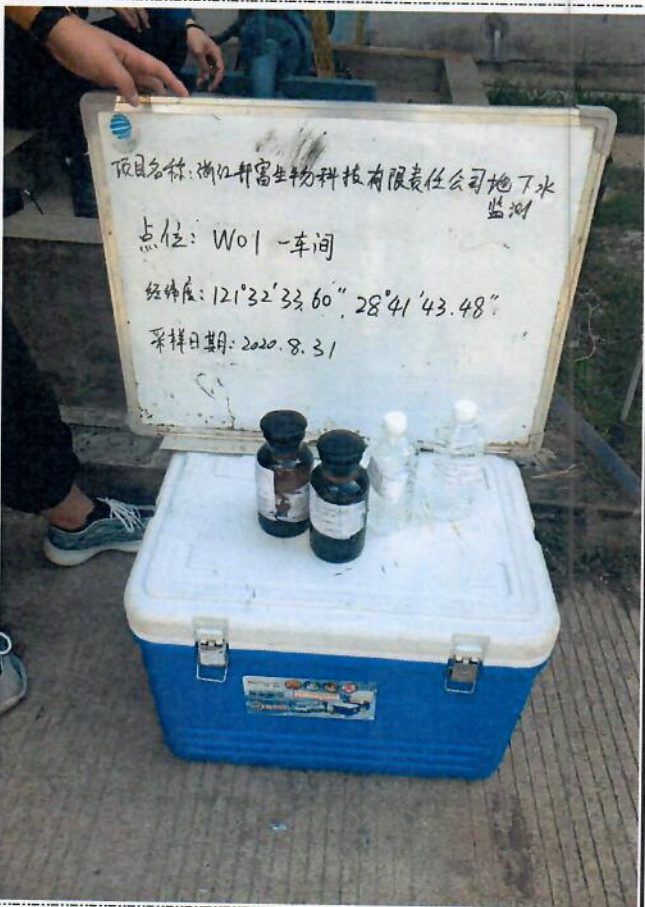 项目名称:浙江邦富生物科技有限责任公司地下水
监测
点位: W01 一车间
经纬度: 121°32′33.60″, 28°41′43.48″
采样日期: 2020.8.31